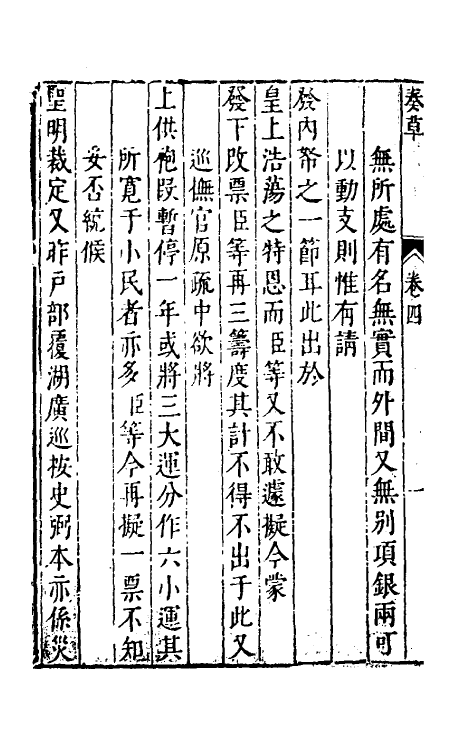 奏草
卷四
一
無所處有名無實而外間又無別項銀兩可
以動支則惟有請
發內帑之一節耳此出於
皇上浩蕩之特恩而臣等又不敢遽擬今蒙
發下改票臣等再三籌度其計不得不出于此又
巡撫官原疏中欲將
上供袍段暫停一年或將三大運分作六小運其
所寬于小民者亦多臣等今再擬一票不知
妥否統候
聖明裁定又昨戶部覆湖廣巡按史弼本亦係災